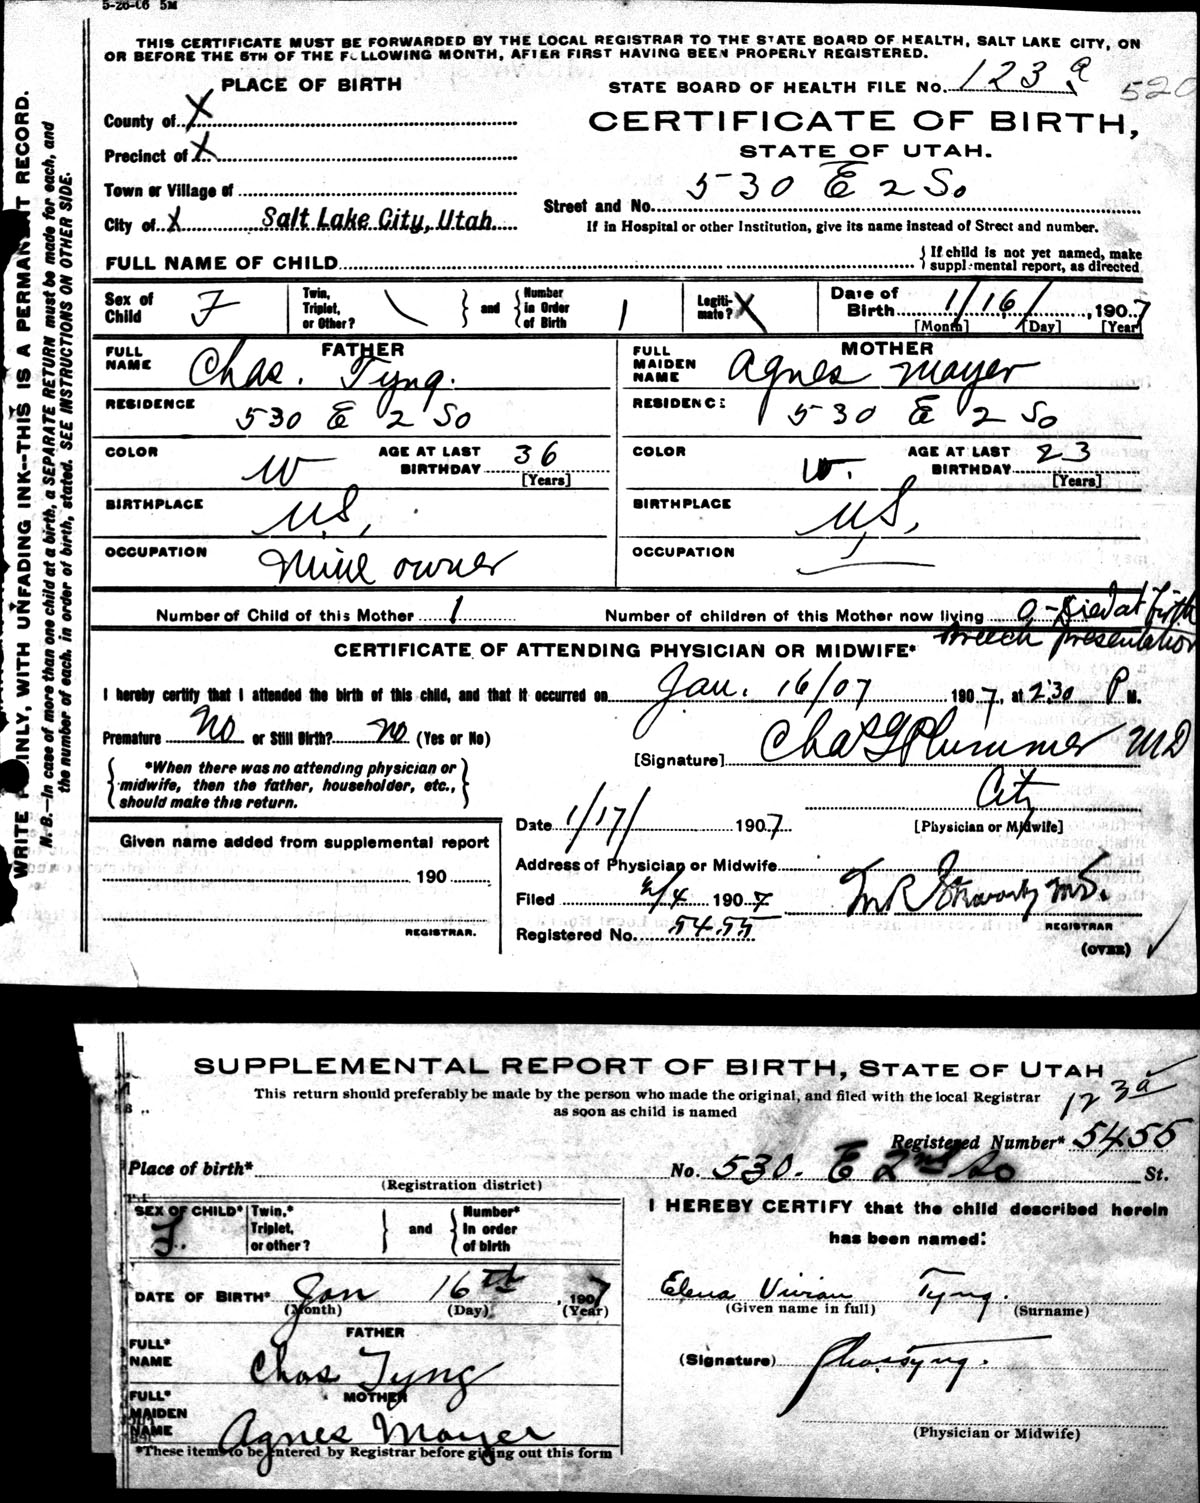 5-26-06 5M
THIS CERTIFICATE MUST BE FORWARDED BY THE LOCAL REGISTRAR TO THE STATE BOARD OF HEALTH, SALT LAKE CITY, ON
OR BEFORE THE 5TH OF THE FOLLOWING MONTH, AFTER FIRST HAVING BEEN PROPERLY REGISTERED.
PLACE OF BIRTH
STATE BOARD OF HEALTH FILE NO. 123 a 520
County of X
CERTIFICATE OF BIRTH,
Precinct of X
STATE OF UTAH.
Town or Village of
Street and No. 530 E 2 So
City of X Salt Lake City, Utah
If in Hospital or other Institution, give its name instead of Street and number.
FULL NAME OF CHILD
{ If child is not yet named, make
supplemental report, as directed
Sex of Child F
Twin, Triplet, or Other? \ } and { Number in Order of Birth 1
Legitimate? X
Date of Birth 1/16/, 1907
[Month] [Day] [Year]
FATHER
FULL NAME Chas. Tyng.
MOTHER
FULL MAIDEN NAME Agnes Mayer
RESIDENCE 530 E 2 So
RESIDENCE: 530 E 2 So
COLOR W AGE AT LAST BIRTHDAY 36 [Years]
COLOR W. AGE AT LAST BIRTHDAY 23 [Years]
BIRTHPLACE U.S.
BIRTHPLACE U.S.
OCCUPATION Mine owner
OCCUPATION
Number of Child of this Mother 1
Number of children of this Mother now living 0 - Died at birth
Breech presentation
CERTIFICATE OF ATTENDING PHYSICIAN OR MIDWIFE*
I hereby certify that I attended the birth of this child, and that it occurred on Jan. 16/07 1907, at 2:30 P M.
Premature No or Still Birth? No (Yes or No)
[Signature] Chas G Plummer MD
{ *When there was no attending physician or midwife, then the father, householder, etc., should make this return. }
City
Date 1/17/ 1907
[Physician or Midwife]
Given name added from supplemental report
190
REGISTRAR.
Address of Physician or Midwife
Filed 2/4 1907
Registered No. 5455
REGISTRAR
(OVER)
WRITE PLAINLY, WITH UNFADING INK—THIS IS A PERMANENT RECORD.
N. B.—In case of more than one child at a birth, a SEPARATE RETURN must be made for each, and
the number of each, in order of birth, stated. SEE INSTRUCTIONS ON OTHER SIDE.
SUPPLEMENTAL REPORT OF BIRTH, STATE OF UTAH
This return should preferably be made by the person who made the original, and filed with the local Registrar
as soon as child is named
123a
Registered Number* 5455
Place of birth* No. 530. E 2nd So St.
(Registration district)
SEX OF CHILD* F.
Twin,* Triplet, or other? } and { Number* In order of birth
DATE OF BIRTH* Jan 16th, 1907
(Month) (Day) (Year)
FATHER
FULL* NAME Chas Tyng
MOTHER
FULL* MAIDEN NAME Agnes Mayer
*These items to be entered by Registrar before giving out this form
I HEREBY CERTIFY that the child described herein
has been named:
Elena Vivian Tyng.
(Given name in full) (Surname)
(Signature) Chas Tyng.
(Physician or Midwife)